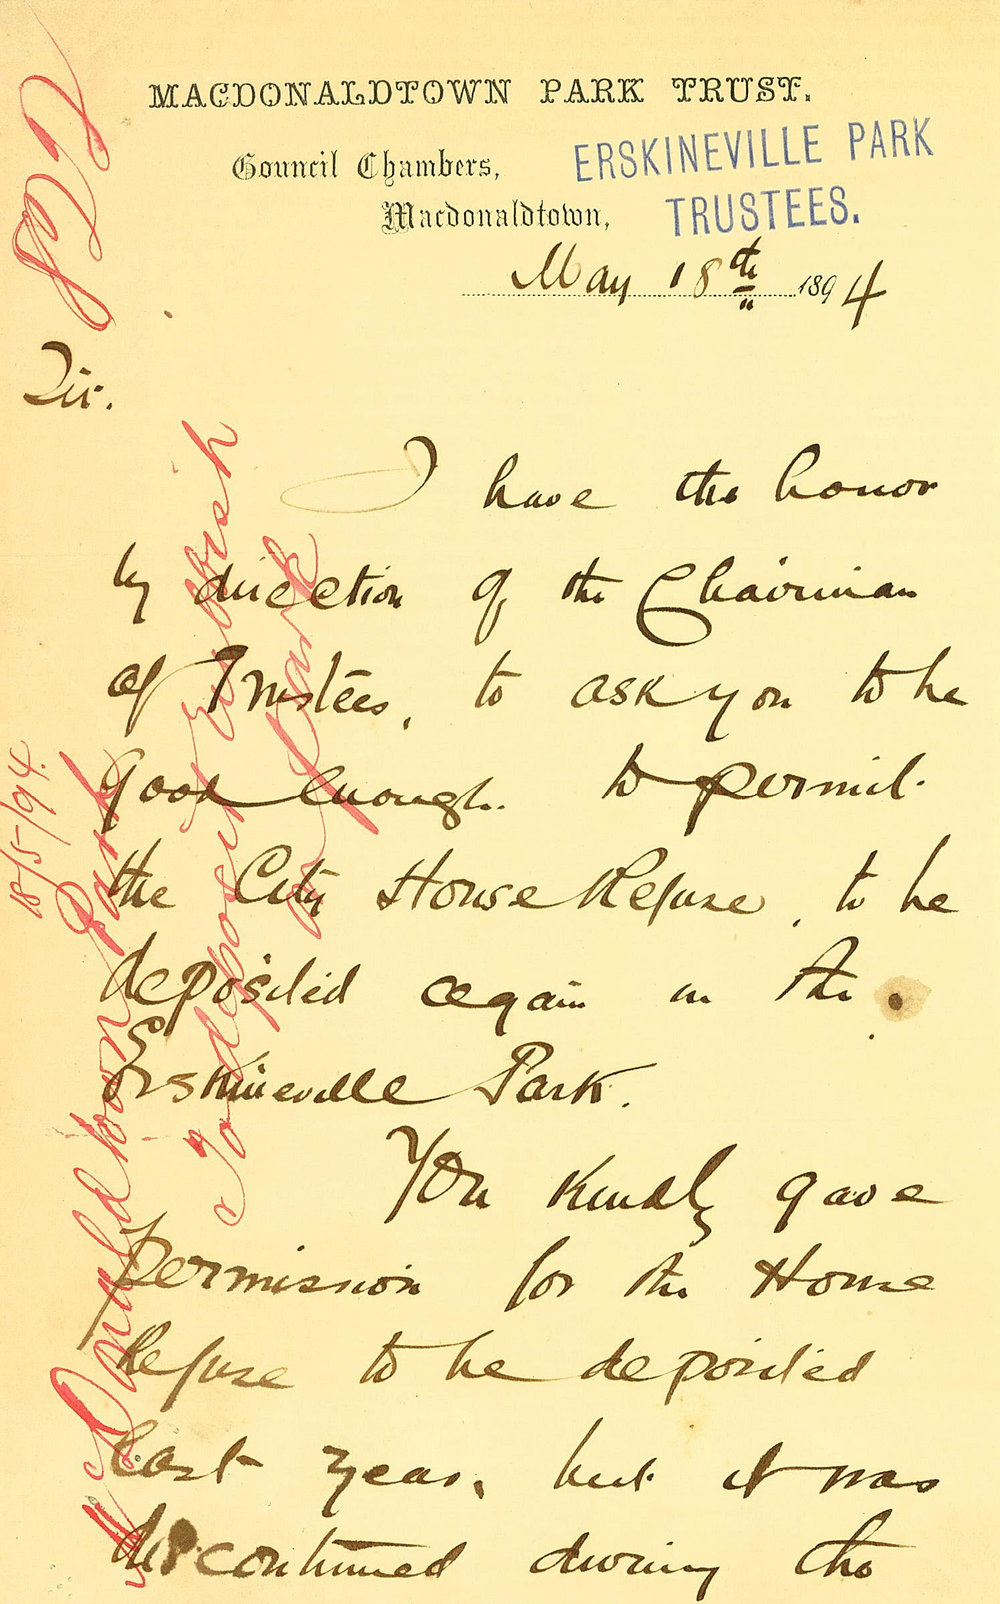 MACDONALDTOWN PARK TRUST.
Council Chambers,
Macdonaldtown,
ERSKINEVILLE PARK
TRUSTEES.
May 18th 1894
Sir.
I have the honor
by direction of the Chairman
of Trustees, to ask you to be
good enough to permit
the City House Refuse, to be
deposited again in the
Erskineville Park.
You kindly gave
permission for the House
Refuse to be deposited
last year, but it was
discontinued during the
18/5/94.
Macdonaldtown Park
To deposit rubbish
on Park